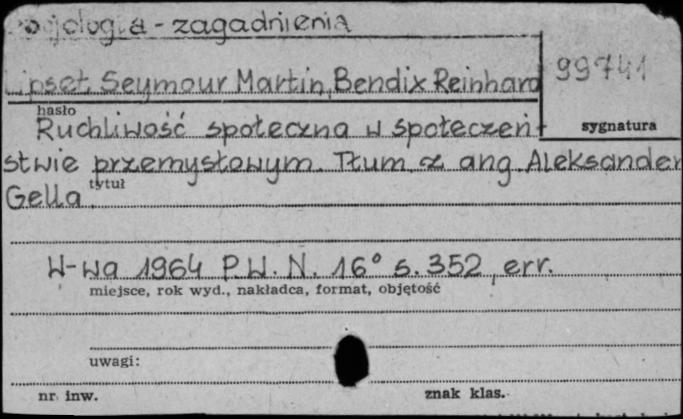 Socjologia - zagadnienia
Lipset Seymour Martin, Bendix Reinhard
99741
hasło
sygnatura
Ruchliwość społeczna w społeczeń-
stwie przemysłowym. Tłum. z ang. Aleksander
tytuł
Gella.
W-wa 1964 P.W.N. 16° s. 352, err.
miejsce, rok wyd., nakładca, format, objętość
uwagi:
nr. inw.
znak klas.